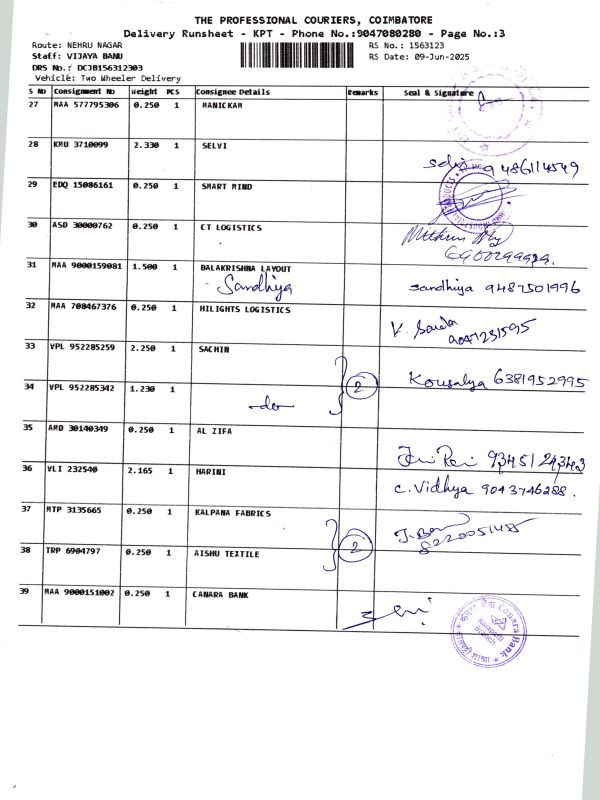 THE PROFESSIONAL COURIERS, COIMBATORE
Delivery Runsheet - KPT - Phone No.:9047080280 - Page No.:3
Route: NEHRU NAGAR RS No.: 1563123
Staff: VIJAYA BANU RS Date: 09-Jun-2025
DRS No.: DCJB156312303
Vehicle: Two Wheeler Delivery
S No Consignment No Weight PCS Consignee Details Remarks Seal & Signature
27 MAA 577795306 0.250 1 MANICKAM
28 KMU 3710099 2.330 1 SELVI
9486114549
29 EDQ 15086161 0.250 1 SMART MIND
30 ASD 30000762 0.250 1 CT LOGISTICS
Mithun
31 MAA 9000159081 1.500 1 BALAKRISHNA LAYOUT
- Sandhiya sandhiya 9487501996
32 MAA 708467376 0.250 1 HILIGHTS LOGISTICS
9047231595
33 VPL 952285259 2.250 1 SACHIN
2 Kousalya 6381952995
34 VPL 952285342 1.230 1
-do-
35 AMD 30140349 0.250 1 AL ZIFA
36 VLI 232540 2.165 1 HARINI
C. Vidhya 9043746288.
37 MTP 3135665 0.250 1 KALPANA FABRICS
2
38 TRP 6904797 0.250 1 AISHU TEXTILE
39 MAA 9000151002 0.250 1 CANARA BANK
Canara Bank
Branch